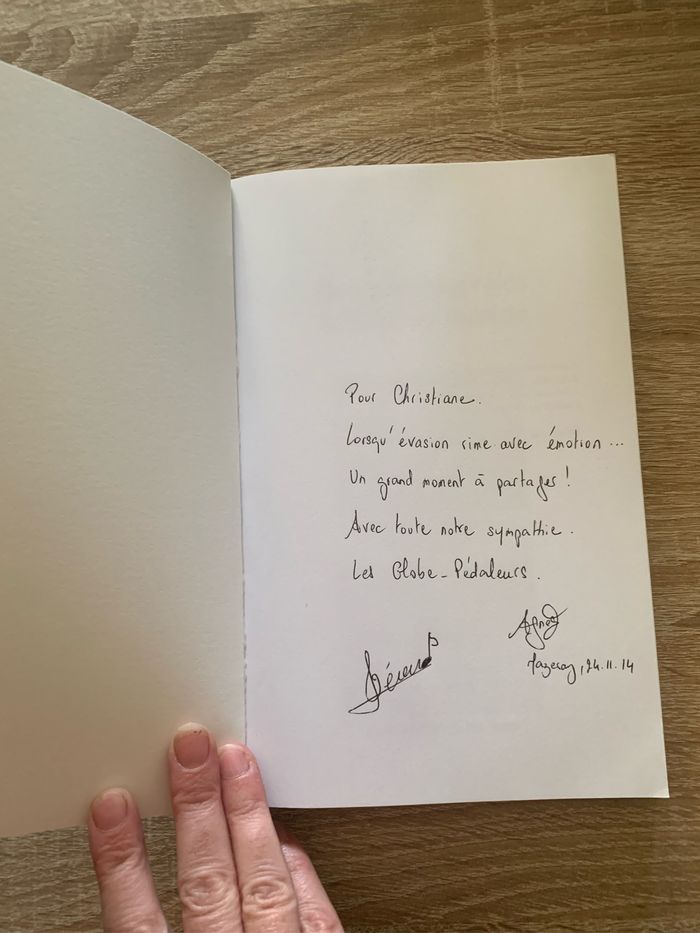 Pour Christiane.
Lorsqu'évasion rime avec émotion...
Un grand moment à partager !
Avec toute notre sympathie.
Les Globe-Pédaleurs.
Agnès
, 24.11.14